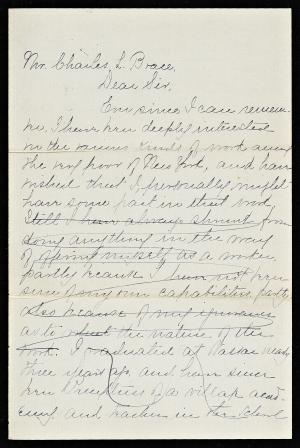 Mr. Charles L. Brace,
Dear Sir,
Ever since I can remem-
ber, I have been deeply interested
in the various kinds of work among
the very poor of New York, and have
wished that I personally might
have some part in that work.
Still I have always shrunk from
doing anything in the way
of offering myself as a worker,
partly because I have not been
sure of my own capabilities, partly
also because of my ignorance
as to the nature of the
work. I graduated at Vassar nearly
three years ago, and have since
been Preceptress of a village acad-
emy, and teacher in the school